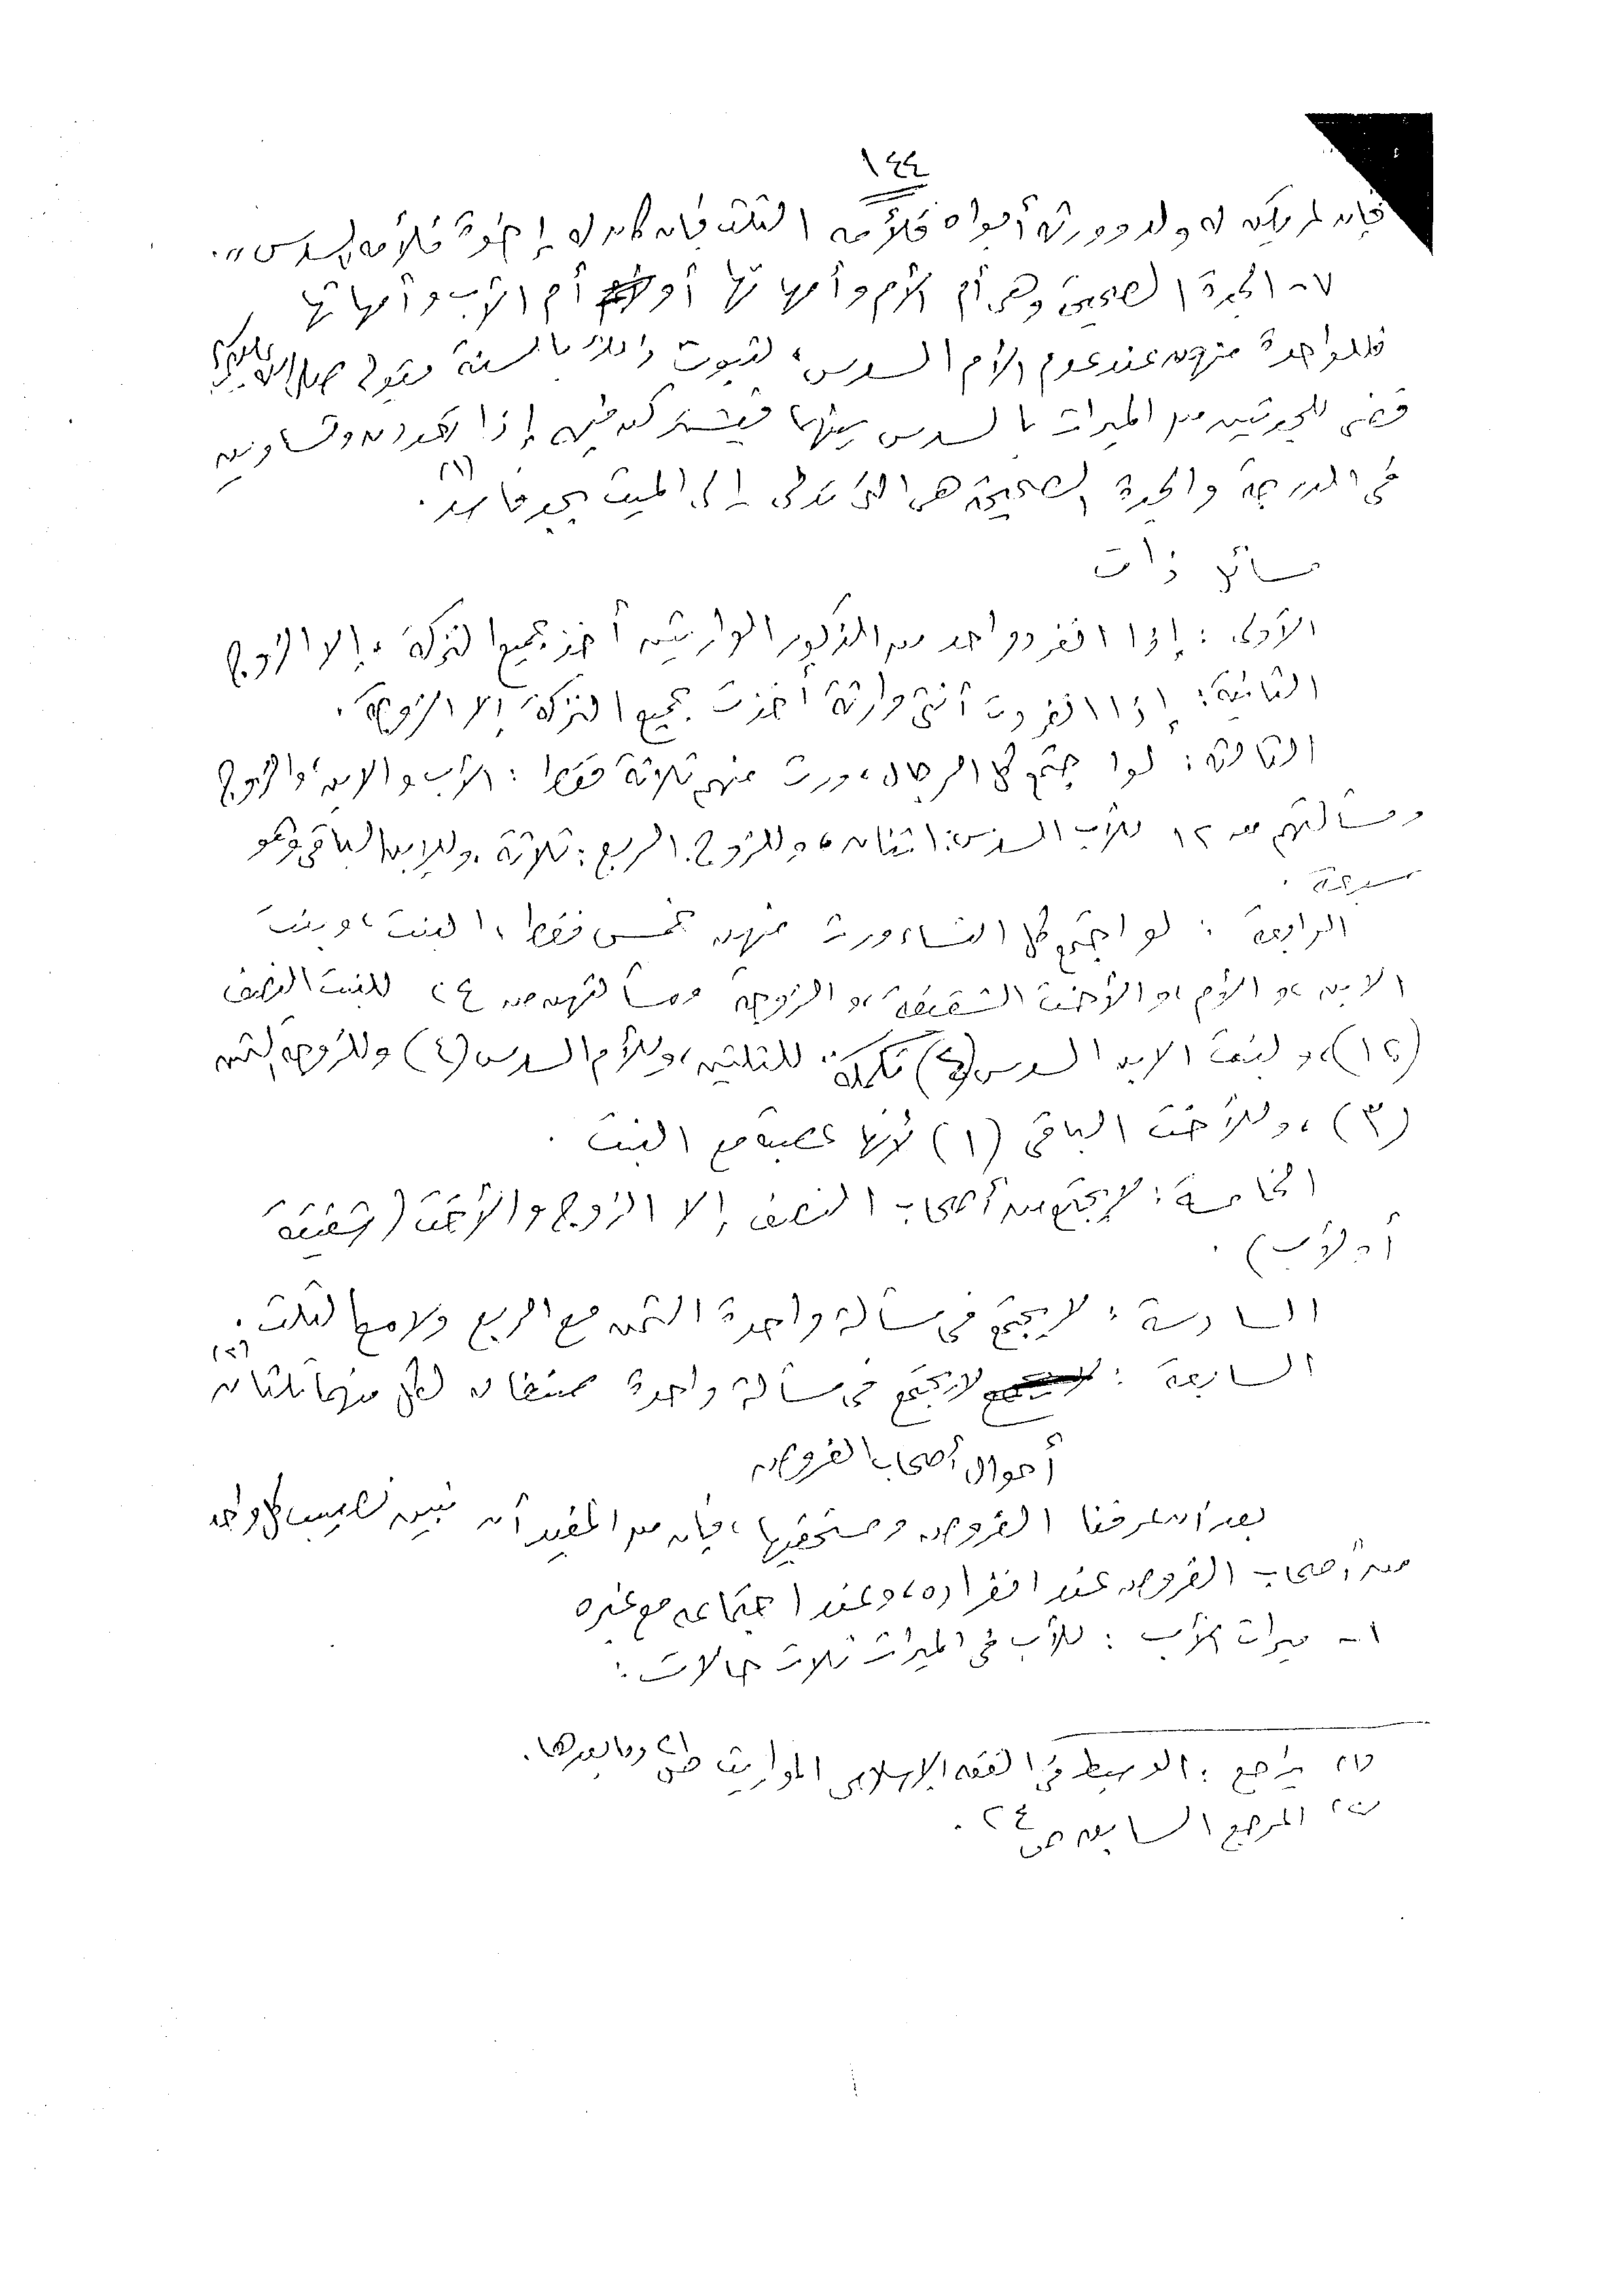 ١٤٤
فإن لم يكن له ولد وورثه أبواه فلأمه الثلث فإن كان له إخوة فلأمه السدس".
٧- الجدة الصحيحة وهي أم الأم وأمهاتها أو أم الأب وأمهاتها
فللواحدة منهن عند عدم الأم السدس، لثبوت ذلك بالسنة فقوله صلى الله عليه وسلم
قضى للجدتين من الميراث بالسدس بينهما فيشتركن فيه إذا تعددن وتساوين
في الدرجة والجدة الصحيحة هي التي تدلى إلى الميت بجد فاسد (١).
مسائل ذات
الأولى: إذا انفرد واحد من الذكور الوارثين أخذ جميع التركة، إلا الزوج
الثانية: إذا انفردت أنثى وارثة أخذت جميع التركة إلا الزوجة.
الثالثة: لو اجتمع كل الرجال، ورث منهم ثلاثة فقط: الأب والابن، والزوج
ومسألتهم من ١٢ للأب السدس: اثنان، وللزوج الربع: ثلاثة. وللابن الباقي وهو
سبعة.
الرابعة: لو اجتمع كل النساء ورث منهن خمس فقط، البنت، وبنت
الابن، والأم، والأخت الشقيقة، والزوجة ومسألتهن من ٢٤ للبنت النصف
(١٢)، ولبنت الابن السدس (٤) تكملة للثلثين، وللأم السدس (٤) وللزوجة الثمن
(٣)، وللأخت الباقي (١) لأنها عصبة مع البنت.
الخامسة: لا يجتمع من أصحاب النصف إلا الزوج والأخت (شقيقة
أو لأب).
السادسة: لا يجتمع في مسألة واحدة الثمن مع الربع ولا مع الثلث.
السابعة: لا يجتمع في مسألة واحدة صنفان لكل منهما ثلثان (٢)
أحوال أصحاب الفروض
بعد أن عرفنا الفروض ومستحقيها، فإن من المفيد أن نبين نصيب كل واحد
من أصحاب الفروض عند انفراده، وعند اجتماعه مع غيره
١- ميراث الأب: للأب في الميراث ثلاث حالات:
(١) يراجع: الوسيط في الفقه الإسلامي المواريث ص وما بعدها.
(٢) المرجع السابق ص ٢٤.